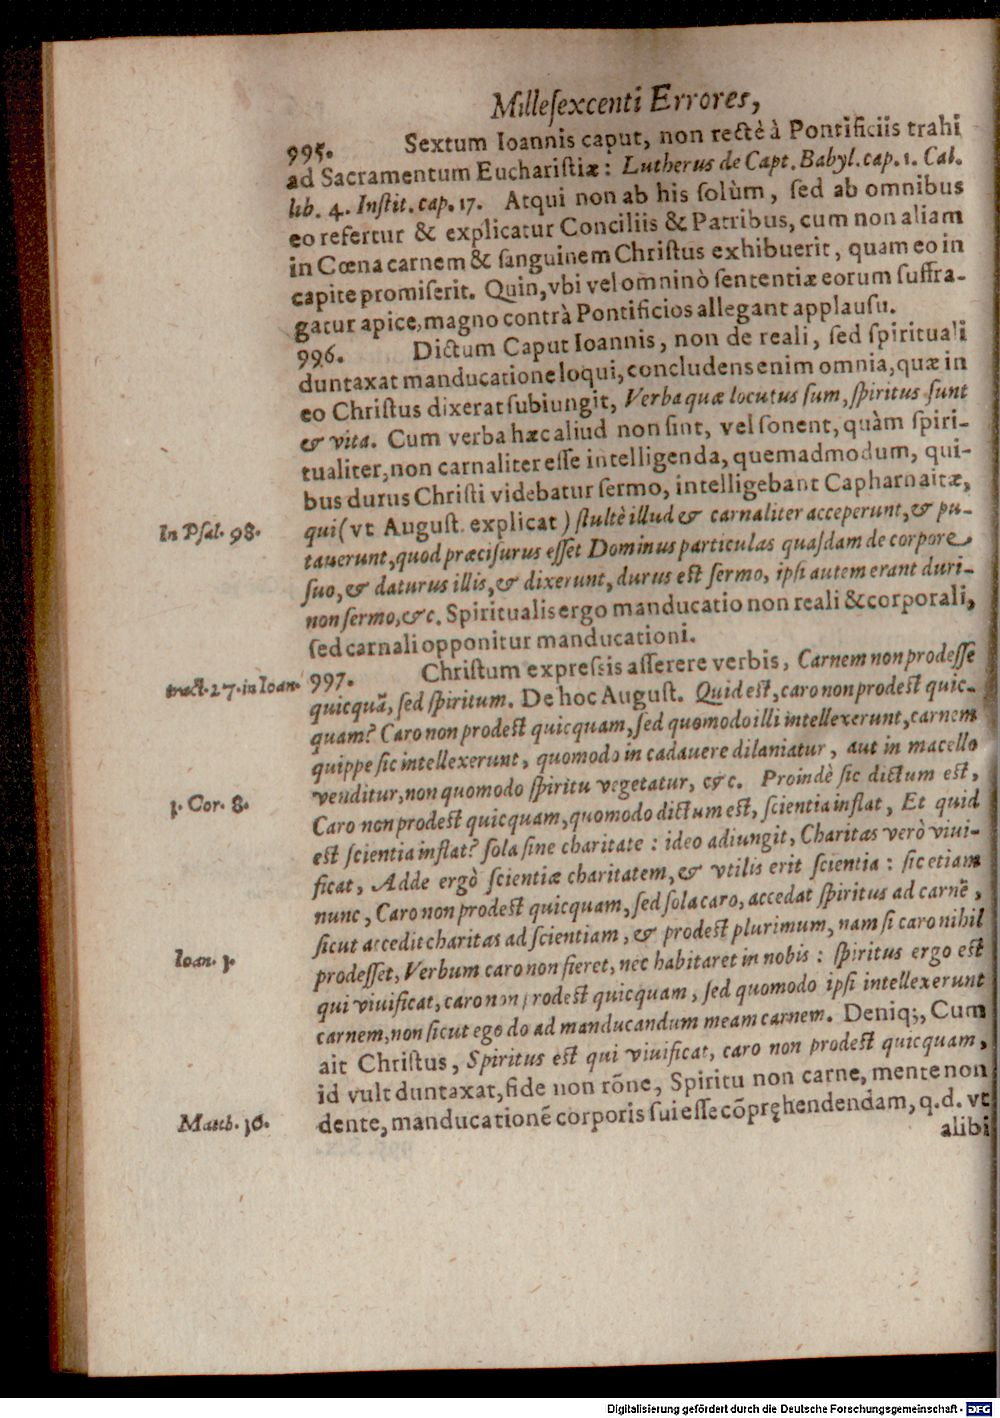 Millesexcenti Errores,
995. Sextum Ioannis caput, non rectè à Pontificiis trahi
ad Sacramentum Euchariſtiæ: Lutherus de Capt. Babyl. cap. 1. Cal.
lib. 4. Inſtit. cap. 17. Atqui non ab his ſolùm, ſed ab omnibus
eo refertur & explicatur Conciliis & Patribus, cum non aliam
in Cœna carnem & ſanguinem Chriſtus exhibuerit, quam eo in
capite promiſerit. Quin, vbi vel omninò ſententiæ eorum ſuffra-
gatur apice, magno contrà Pontificios allegant applauſu.
996. Dictum Caput Ioannis, non de reali, ſed ſpirituali
duntaxat manducatione loqui, concludens enim omnia, quæ in
eo Chriſtus dixerat ſubiungit, Verba quæ locutus ſum, ſpiritus ſunt
& vita. Cum verba hæc aliud non ſint, vel ſonent, quàm ſpiri-
tualiter, non carnaliter eſſe intelligenda, quemadmodum, qui-
bus durus Chriſti videbatur ſermo, intelligebant Capharnaitæ,
In Pſal. 98.
qui (vt Auguſt. explicat) ſtultè illud & carnaliter acceperunt, & pu-
tauerunt, quod præciſurus eſſet Dominus particulas quaſdam de corpore
ſuo, & daturus illis, & dixerunt, durus eſt ſermo, ipſi autem erant duri-
non ſermo, &c. Spiritualis ergo manducatio non reali & corporali,
ſed carnali opponitur manducationi.
tract. 27. in Ioan.
997. Chriſtum expreſsis aſſerere verbis, Carnem non prodeſſe
quicquã, ſed ſpiritum. De hoc Auguſt. Quid eſt, caro non prodeſt quic-
quam? Caro non prodeſt quicquam, ſed quomodo illi intellexerunt, carnem
quippe ſic intellexerunt, quomodo in cadauere dilaniatur, aut in macello
venditur, non quomodo ſpiritu vegetatur, &c. Proindè ſic dictum eſt,
1. Cor. 8.
Caro non prodeſt quicquam, quomodo dictum eſt, ſcientia inflat, Et quid
eſt ſcientia inflat? ſola ſine charitate: ideo adiungit, Charitas verò viui-
ficat, Adde ergò ſcientiæ charitatem, & vtilis erit ſcientia: ſic etiam
nunc, Caro non prodeſt quicquam, ſed ſola caro, accedat ſpiritus ad carnẽ,
ſicut accedit charitas ad ſcientiam, & prodeſt plurimum, nam ſi caro nihil
Ioan. 1.
prodeſſet, Verbum caro non fieret, nec habitaret in nobis: ſpiritus ergo eſt
qui viuificat, caro non prodeſt quicquam, ſed quomodo ipſi intellexerunt
carnem, non ſicut ego do ad manducandum meam carnem. Deniq;, Cum
ait Chriſtus, Spiritus eſt qui viuificat, caro non prodeſt quicquam,
id vult duntaxat, fide non rõne, Spiritu non carne, mente non
Matth. 16.
dente, manducationẽ corporis ſui eſſe cõpręhendendam, q.d. vt
alibi
Digitalisierung gefördert durch die Deutsche Forschungsgemeinschaft - DFG